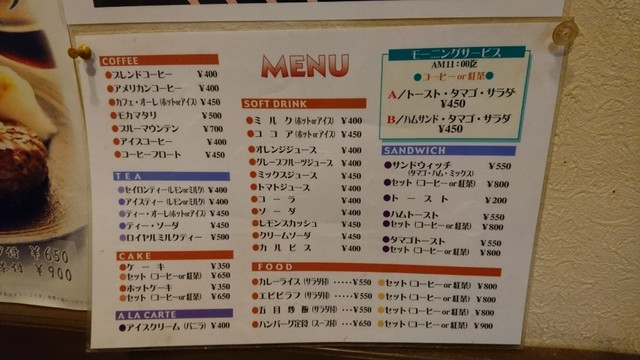 MENU
COFFEE
●ブレンドコーヒー ¥400
●アメリカンコーヒー ¥400
●カフェ・オーレ(ホットorアイス) ¥450
●モカマタリ ¥500
●ブルーマウンテン ¥700
●アイスコーヒー ¥400
●コーヒーフロート ¥450
TEA
●セイロンティー(レモンorミルク) ¥400
●アイスティー(レモンorミルク) ¥400
●ティー・オーレ(ホットorアイス) ¥450
●ティー・ソーダ ¥450
●ロイヤルミルクティー ¥500
CAKE
●ケーキ ¥350
●セット(コーヒーor紅茶) ¥650
●ホットケーキ ¥350
●セット(コーヒーor紅茶) ¥650
A LA CARTE
●アイスクリーム(バニラ) ¥400
SOFT DRINK
●ミルク(ホットorアイス) ¥400
●ココア(ホットorアイス) ¥450
●オレンジジュース ¥400
●グレープフルーツジュース ¥400
●ミックスジュース ¥450
●トマトジュース ¥400
●コーラ ¥400
●ソーダ ¥400
●レモンスカッシュ ¥450
●クリームソーダ ¥450
●カルピス ¥400
モーニングサービス
AM11:00迄
●コーヒーor紅茶●
A/トースト・タマゴ・サラダ
¥450
B/ハムサンド・タマゴ・サラダ
¥450
SANDWICH
●サンドウィッチ ¥550
(タマゴ・ハム・ミックス)
●セット(コーヒーor紅茶) ¥800
●トースト ¥200
●ハムトースト ¥550
●セット(コーヒーor紅茶) ¥800
●タマゴトースト ¥550
●セット(コーヒーor紅茶) ¥800
FOOD
●カレーライス(サラダ付)‥‥‥¥550 ●セット(コーヒーor紅茶) ¥800
●エビピラフ(サラダ付)‥‥‥¥550 ●セット(コーヒーor紅茶) ¥800
●五目炒飯(サラダ付)‥‥‥¥550 ●セット(コーヒーor紅茶) ¥800
●ハンバーグ定食(スープ付)‥‥¥650 ●セット(コーヒーor紅茶) ¥900
¥650
¥900